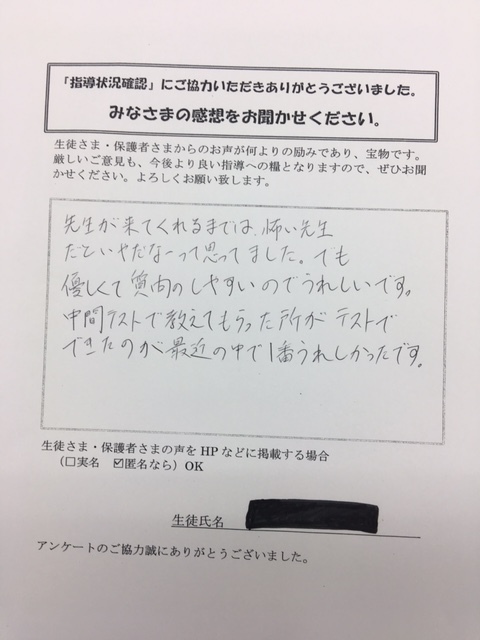 「指導状況確認」にご協力いただきありがとうございました。
みなさまの感想をお聞かせください。
生徒さま・保護者さまからのお声が何よりの励みであり、宝物です。
厳しいご意見も、今後より良い指導への糧となりますので、ぜひお聞
かせください。よろしくお願い致します。
先生が来てくれるまでは、怖い先生
だといやだなーって思ってました。でも
優しくて質問のしやすいのでうれしいです。
中間テストで教えてもらった所がテストで
できたのが最近の中で1番うれしかったです。
生徒さま・保護者さまの声をHPなどに掲載する場合
(□実名 ☑匿名なら)OK
生徒氏名
アンケートのご協力誠にありがとうございました。